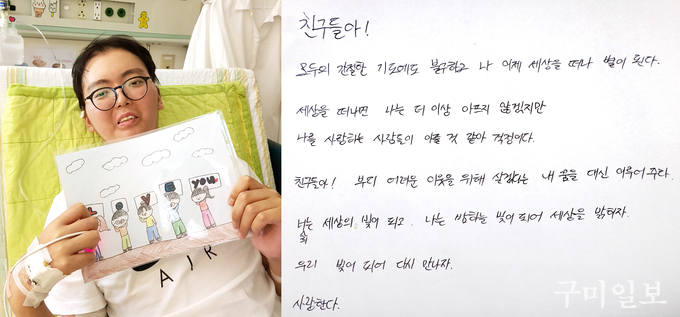 LOVE you
AIR
친구들아!
모두의 간절한 기도에도 불구하고 나 이제 세상을 떠나 별이 된다.
세상을 떠나면 나는 더 이상 아프지 않겠지만
나를 사랑하는 사람들이 아플 것 같아 걱정이다.
친구들아! 부디 어려운 이웃을 위해 살겠다는 내 꿈을 대신 이루어주라.
너희는 세상의 빛이 되고. 나는 밤하늘 빛이 되어 세상을 밝히자.
우리 빛이 되어 다시 만나자.
사랑한다.
구미일보